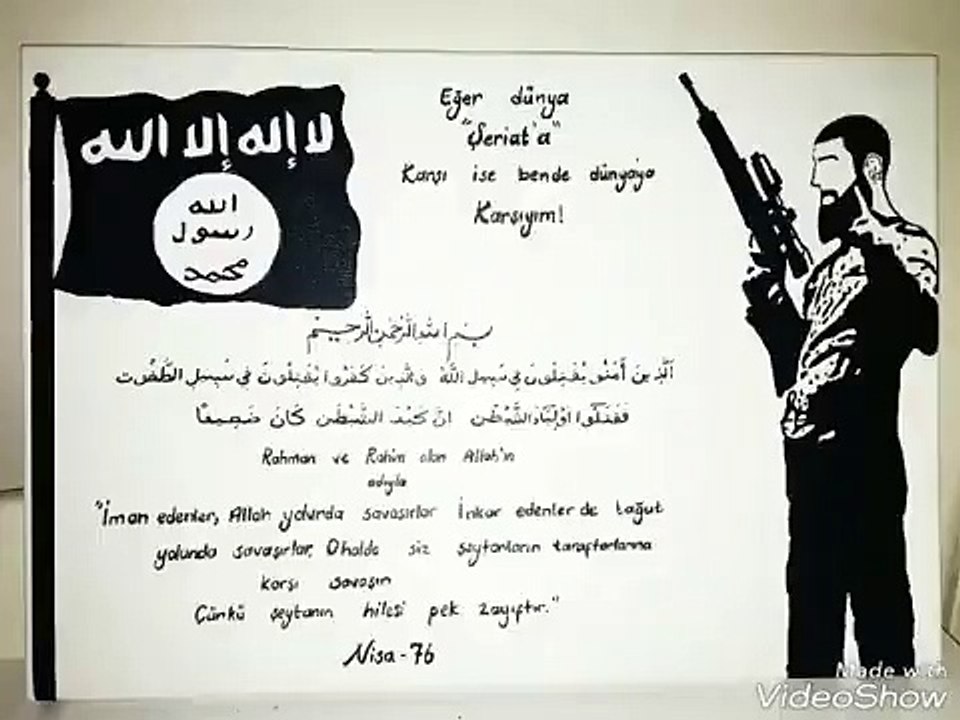 لا إله إلا الله
الله
رسول
محمد
Eğer dünya
"Şeriat'a"
Karşı ise bende dünyaya
Karşıyım!
بسم الله الرحمن الرحيم
اَلَّذِينَ أٰمَنُو يُقَٰتِلُونَ فِي سَبِيلِ اللّٰهِ وَالَّذِينَ كَفَرُوا يُقَٰتِلُونَ فِي سَبِيلِ الطَّٰغُوت
فَقَٰتِلُوا اَوْلِيَٓاءَ الشَّيْطَٰن اِنَّ كَيْدَ الشَّيْطَٰن كَانَ ضَعِيفًا
Rahman ve Rahim olan Allah'ın
adıyla
"İman edenler, Allah yolunda savaşırlar İnkar edenler de tağut
yolunda savaşırlar, Ohalde siz şeytanların taraftarlarına
karşı savaşın
Çünkü şeytanın hilesi pek zayıftır."
Nisa-76
Made with
VideoShow